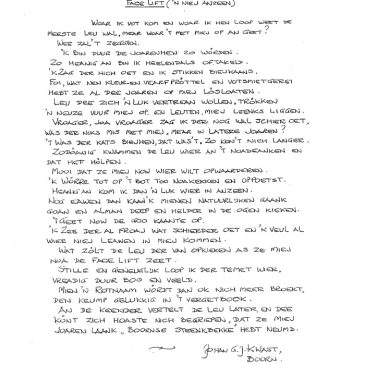 FACE LIFT ('N NIEU ANZEEN)
WOAR IK VOT KOM EN WOAR IK HEN LOOP WEET DE
MEESTE LEU WAL, MEAR WOAR 'T MET MIEN OP AN GEET?
WEE ZAL 'T ZEGGEN.
'K BIN DUUR DE JOARENHEN ZO WÖRDEN.
ZO HEANIG AN BIN IK HEELENDALS OFTAKELD.
'K ZAG DER HICH OET EN IK STIKKEN BIENKAANS.
FOI, WAT NEN KLEUR EN VEARF PRÖTTEL EN VOTSMIETGEREI
HEBT ZE AL DEE JOAREN OP MIEN LÖSLOATEN.
LEU DEE ZICH 'N LUK VERTREAN WOLLEN, TRÖKKEN
'N NEUZE VUUR MIEN OP. EN LEUTEN, MIEN LEENKS LIGGEN.
VROAGER, JOA VROAGER ZAG IK DER NOG WAL SCHIER OET,
WAS DER NIKS MIS MET MIEN, MEAR IN LATERE JOAREN?
'T WAS DER KATS BIENHEN, DAT WAS'T, ZO KON'T NICH LANGER.
ZODÖANIG KWAMMEN DE LEU WIER AN 'T NOADEANKEN EN
DAT HET HÖLPEN.
MOOI DAT ZE MIEN NOW WIER WILT OPWAARDEREN.
'K WÖRRE TOT OP 'T BOT TOO NOALKEKKEN EN OPPOETST.
HEANIG AN KOM IK DAN 'N LUK WIER IN ANZEEN.
NOG EAWEN DAN KAAN'K MIENEN NATUURLIKEN GAANK
GOAN EN ALMAN DEEP EN HELDER IN DE OGEN KIEKEN.
'T GEET NOW DE GOO KAANTE OP.
'K ZEE DER AL FROAJ WAT SCHIERDER OET EN 'K VEUL AL
WIER NIEU LEAWEN IN MIEN KOMMEN.
WAT ZÖLT DE LEU DER VAN OPKIEKEN AS ZE MIEN
NOA DE FACE LIFT ZEET.
STILLE EN GENEUGLIJK LOOP IK DER TEMET WIER,
VREADIG DUUR BOO EN VEELD.
MIEN 'N ROTNAAM WÖRDT DAN OK NICH MEER BROEKT,
DEN KEUMP GELUKKIG IN 'T VERGETBOOK.
AN DE KEENDER VERTELT DE LEU LATER, EN DEE
KÖNT ZICH HOASTE NICH BEGRIEPEN, DAT ZE MIEN
JOAREN LAANK „BOORNSE STEENKBEKKE" HEBT NEUMD.
JOHAN G.J. KWAST,
BOORN.